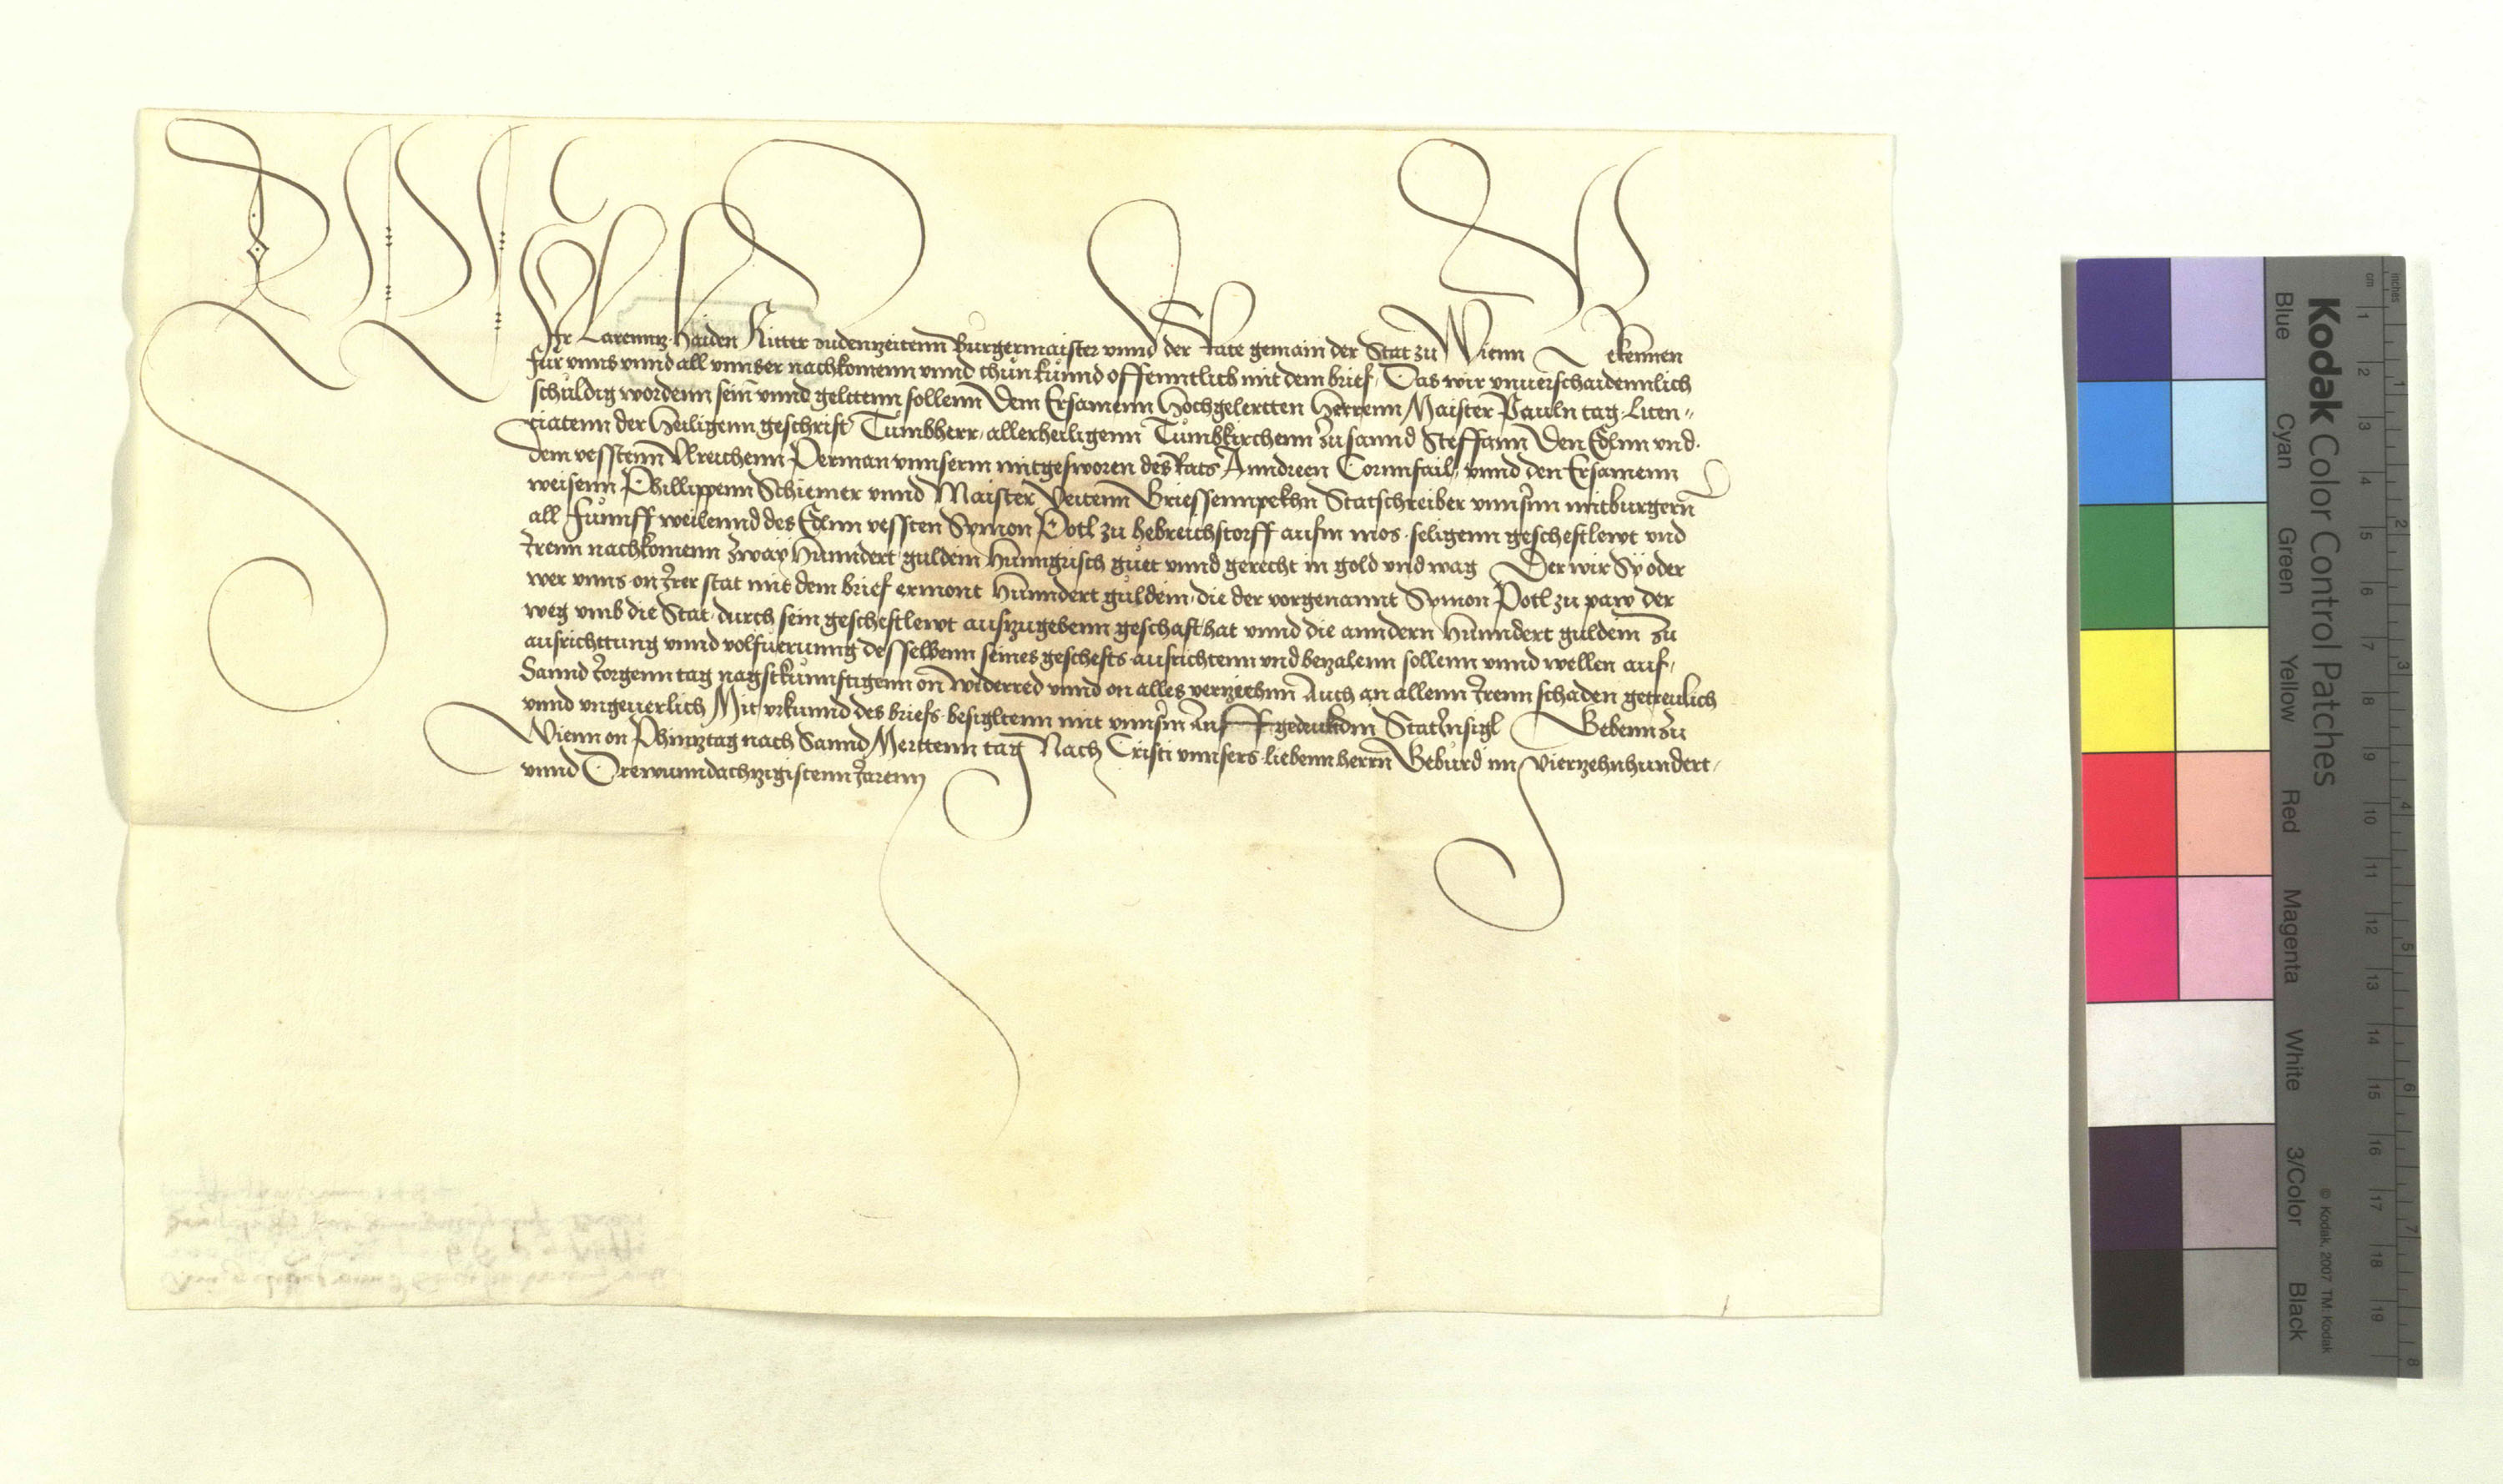 Wir Larenntz Haiden Ritter zudenzeitenn Burgermaister vnnd der Rate gemain der Stat zu Wienn Bekennen
für vnns vnnd all vnnser nachkomenn vnnd thun kunnd offenntlich mit dem brief, Das wir vnuerschaidennlich
schuldig wordenn sein vnnd gelttenn sollenn Dem Ersamenn Hochgelertten Herrenn Maister Pauln tag Licen"
ciatenn der Heiligenn geschrift Tumbherr allerheiligenn Tumbkirchenn zu sannd Steffann Den Edlnn vnd
dem vesstenn Vlreichenn Perman vnnserm mitgesworen des Rats Anndreen Cornnfail, vnnd den Ersamenn
weisenn Phillippenn Schiemer vnnd Maister Veitenn Griessennpekhn Statschreiber vnnsern mitburgern
all Funnff weilennd des Edlnn vessten Symon Potl zu hebreichstorff aufm mos seligenn gescheftlewt vnd
Irenn nachkomenn zway Hunndert guldein Hunngrisch guet vnnd gerecht in gold vnd wag Der wir Sy oder
wer vnns on Irer stat mit dem brief ermont Hunndert guldein, die der vorgenannt Symon Potl zu paw der
weg vmb die Stat durch sein gescheftlewt auszugebenn geschaft hat vnnd die anndern Hunndert guldein zu
ausrichttung vnnd volfuerunng desselbenn seines geschefts ausrichtenn vnd betzalenn sollenn vnnd wellen auf,
Sannd Jorgenn tag nagstkunnftigenn on widerred vnnd on alles vertziehnn Auch an allenn Irenn schaden getreulich
vnnd vngeuerlich Mit vrkunnd des briefs besigltenn mit vnnserm Auffgedrukdm StatInsigl Gebenn zu
Wienn on Phintztag nach Sannd Merttenn tag Nach Cristi vnnsers liebenn herrn Geburd im vierzehnhundert,
vnnd Drewunndachtzigistenn Jarenn
Kodak Color Control Patches
Blue Cyan Green Yellow Red Magenta White 3/Color Black
© Kodak, 2007 TM: Kodak
cm 1 2 3 4 5 6 7 8 9 10 11 12 13 14 15 16 17 18 19
inches 1 2 3 4 5 6 7 8